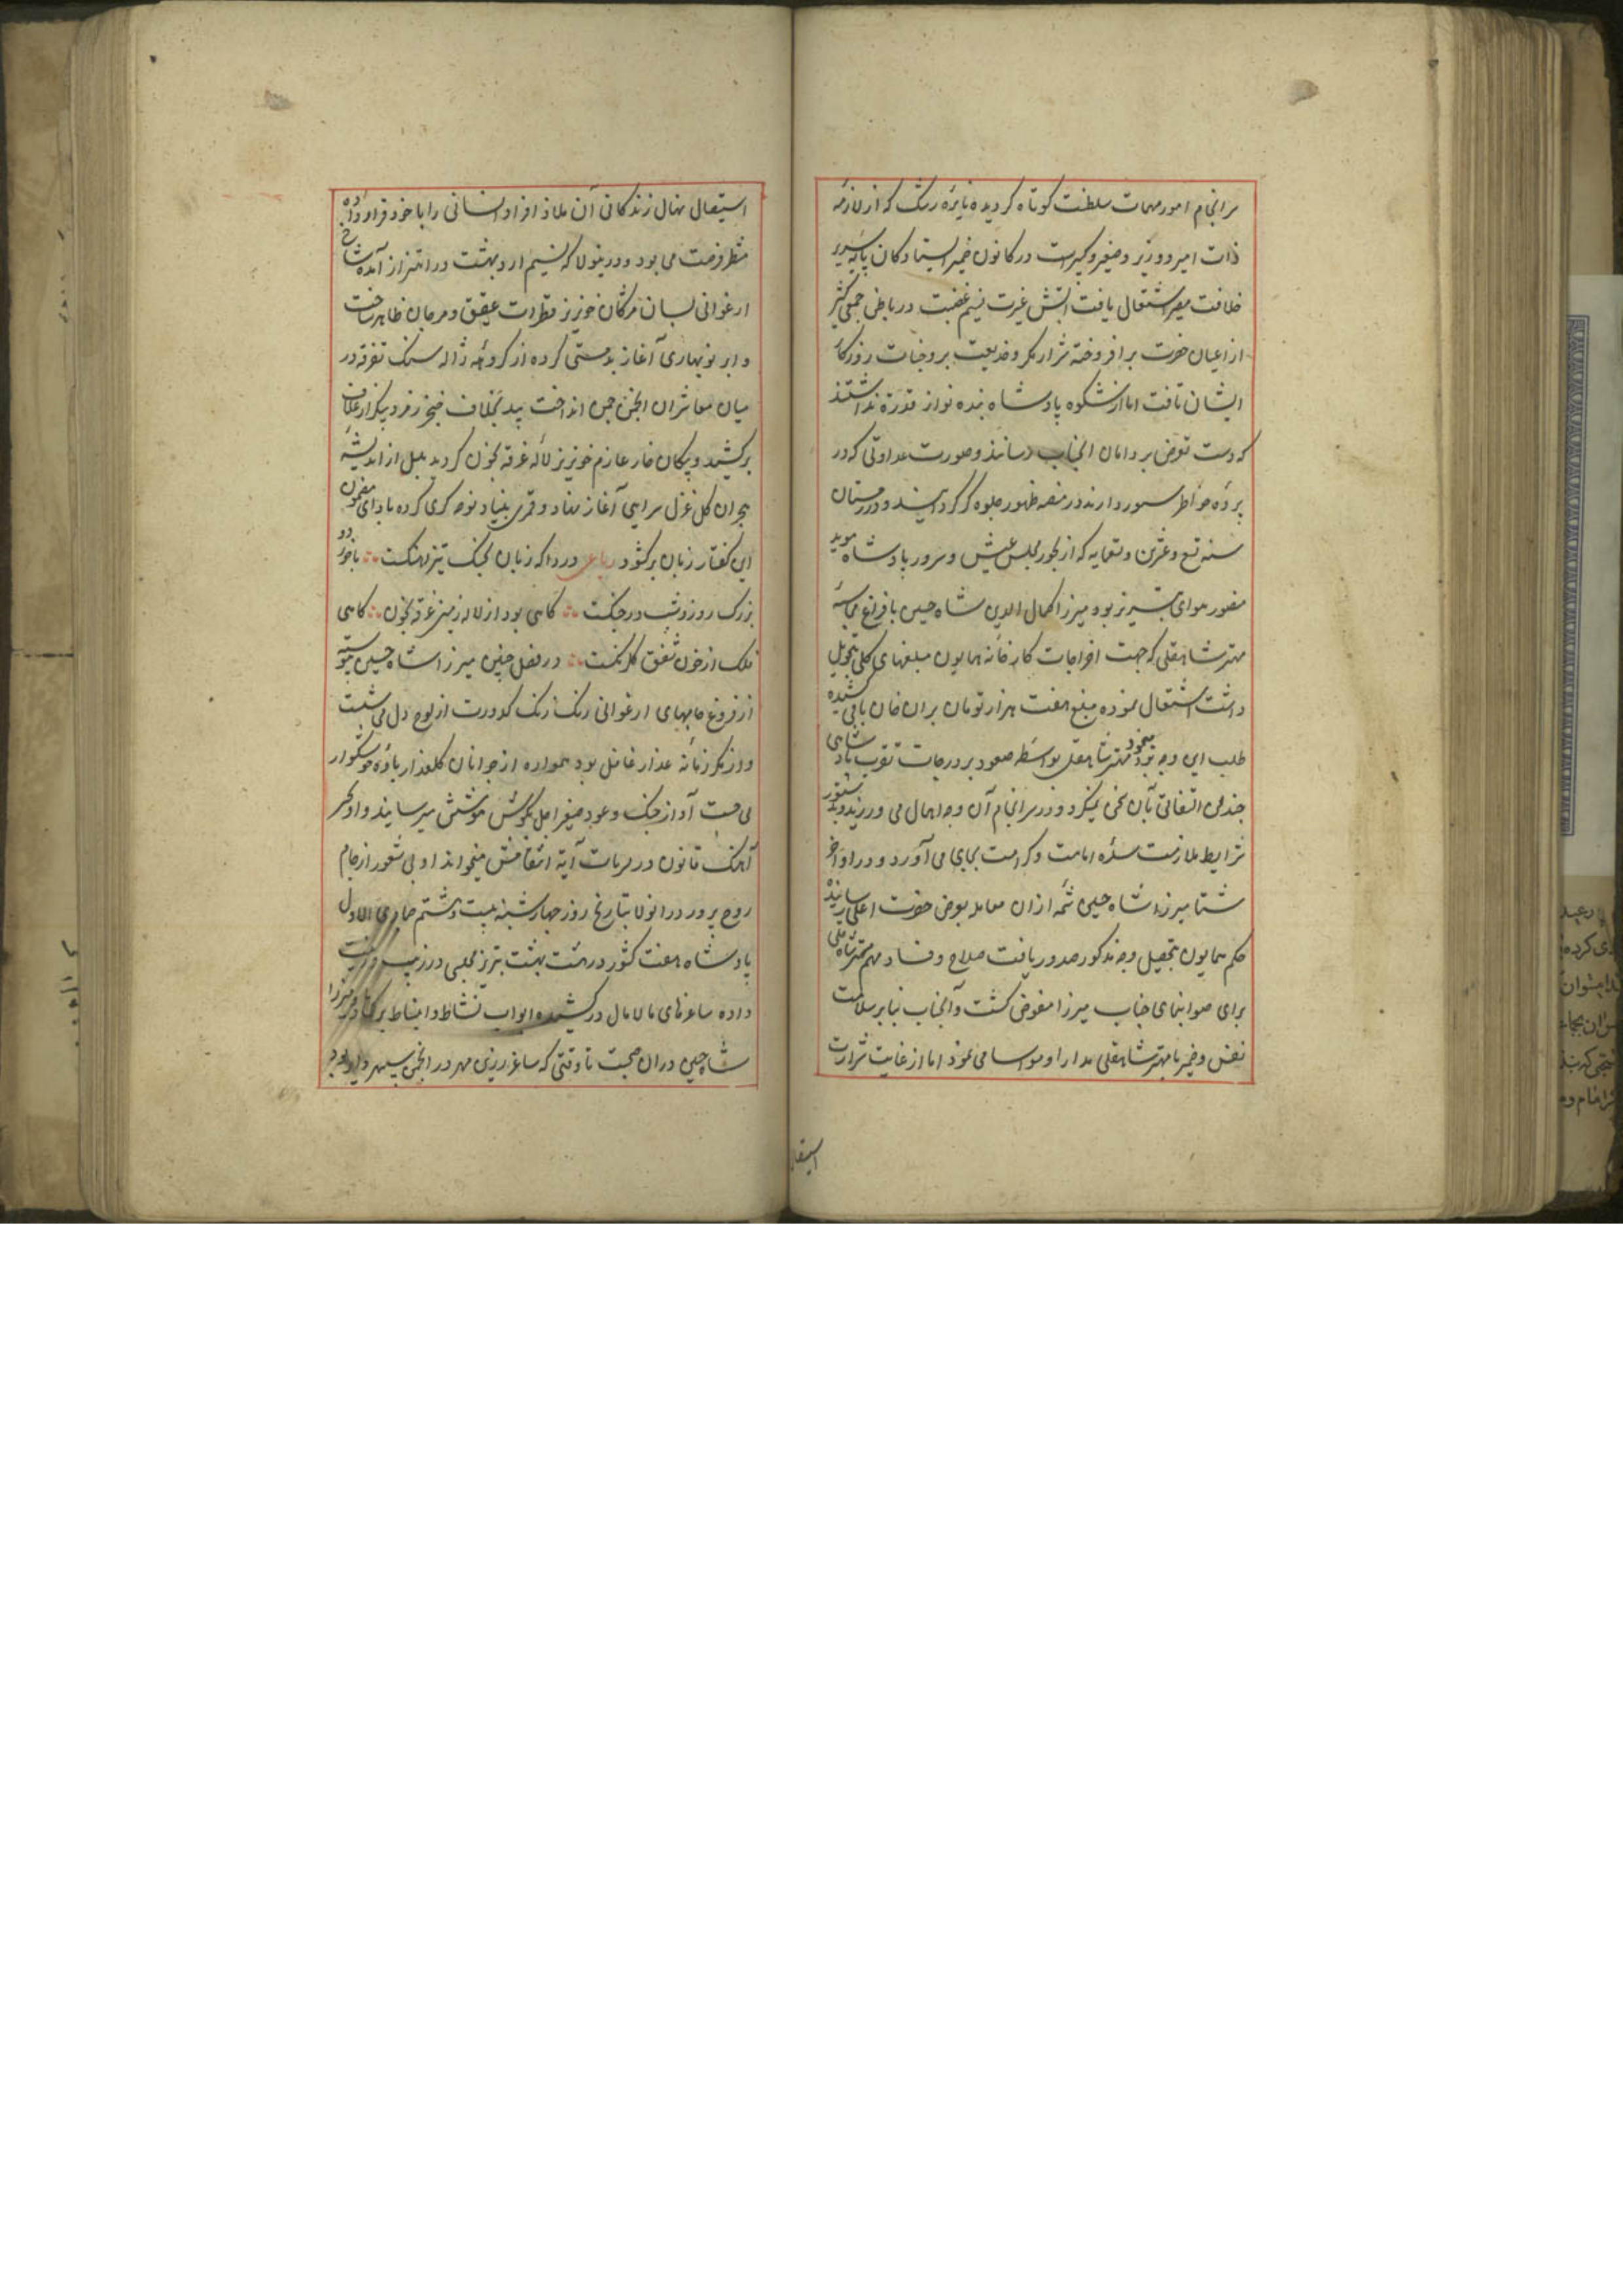 سرانجام امور مهمات سلطنت کوتاه کردیده نایره رشک که از لازمه
ذات امیر و وزیر و صغیر و کبیرست در کانون ضمیر ایستادکان پایه سریر
خلافت مصیر اشتعال یافت آتش غیرت در باطن جمعی کثیر
از اعیان حضرت برافروخته شرار مکر و خدیعت بر وجنات روزکار
ایشان تافت اما از شکوه پادشاه بنده نواز قدرة نداشتند
که دست تعرض بر دامان آنجناب رسانند و صورت عداوتی که در
پرده خواطر مستور دارند در منصه ظهور جلوه کر کردانند و در زمستان
سنه تسع و عشرین و تسعمایه که از بخور مجلس عیش و سرور پادشاه موید
منصور هوای تبریز بود میرزا کمال الدین شاه حسین بافراغ محاسبه
مهتر شاهقلی که جهت اخراجات کارخانه همایون مبلغهای کلی تحویل
داشت اشتغال نموده مبلغ هفت هزار تومان بران خان باقی کشیده
طلب این وجه نمود و مهتر شاهقلی بواسطه صعود بر درجات تقرب پادشاهی
چندان التفاتی بآن سخن نمیکرد و در سرانجام آن وجه اهمال می ورزید و بدستور
شرایط ملازمت سده امامت و کرامت بجای می آورد و در اواخر
شتا میرزا شاه حسین شمه ازان معامله بعرض حضرت اعلی رسانیده
حکم همایون بتحصیل وجه مذکور صدور یافت صلاح و فساد مهم مهتر شاهقلی
برای صوابنمای جناب میرزا مفوض کشت و آنجناب بنابر سلامت
نفس و خیر با مهتر شاهقلی مدارا و مواسا می نمود اما از غایت شرارت
استیصال نهال زندکانی آن ملاذ افراد انسانی را با خود قرار داده
منتظر فرصت می بود و درینولا که نسیم اردیبهشت در اهتزاز آمده شاخ
ارغوانی بسان مژکان خونریز قطرات عقیق و مرجان ظاهر ساخت
و ابر نوبهاری آغاز بدمستی کرده از کروهه ژاله سنک تفرقه در
میان معاشران انجمن چمن انداخت بید بخلاف خنجر زمرد پیکر از غلاف
برکشید و پیکان خار عازم خونریز لاله غرقه بخون کردید بلبل از اندیشه
هجران کل غزل سرایی آغاز نهاد و قمری بنیاد نوحه کری کرده بادای مضمون
این کفتار زبان برکشود رباعی دردا که زبان بجنک تیز آهنکست ∴ با خورد و
بزرک روز و شب در جنکست ∴ کاهی بود از لاله زمین غرقه بخون ∴ کاهی
فلک از خون شفق کلرنکست ∴ در فصل چنین میرزا شاه حسین پیوسته
از فروغ جامهای ارغوانی رنک زنک کدورت از لوح دل می شست
و از مکر زمانه غدار غافل بود همواره از جوانان کلعذار باده خوشکوار
می جست آواز چنک و عود صفیر اجل بکوش هوشش میرسانید و او بر
آهنک قانون در لمعات آیة انتقامش میخواند او بی شعور از جام
روح پرور درانولا بتاریخ روز چهارشنبه بیست و هشتم جمادی الاول
پادشاه هفت کشور در هشت بهشت تبریز مجلسی در زیب و زینت
داده ساغرهای مالامال درکشیده ابواب نشاط و انبساط برکشاد و میرزا
شاه حسین دران صحبت تا وقتی که ساغر زرین مهر در انجمن سپهر
استیصال